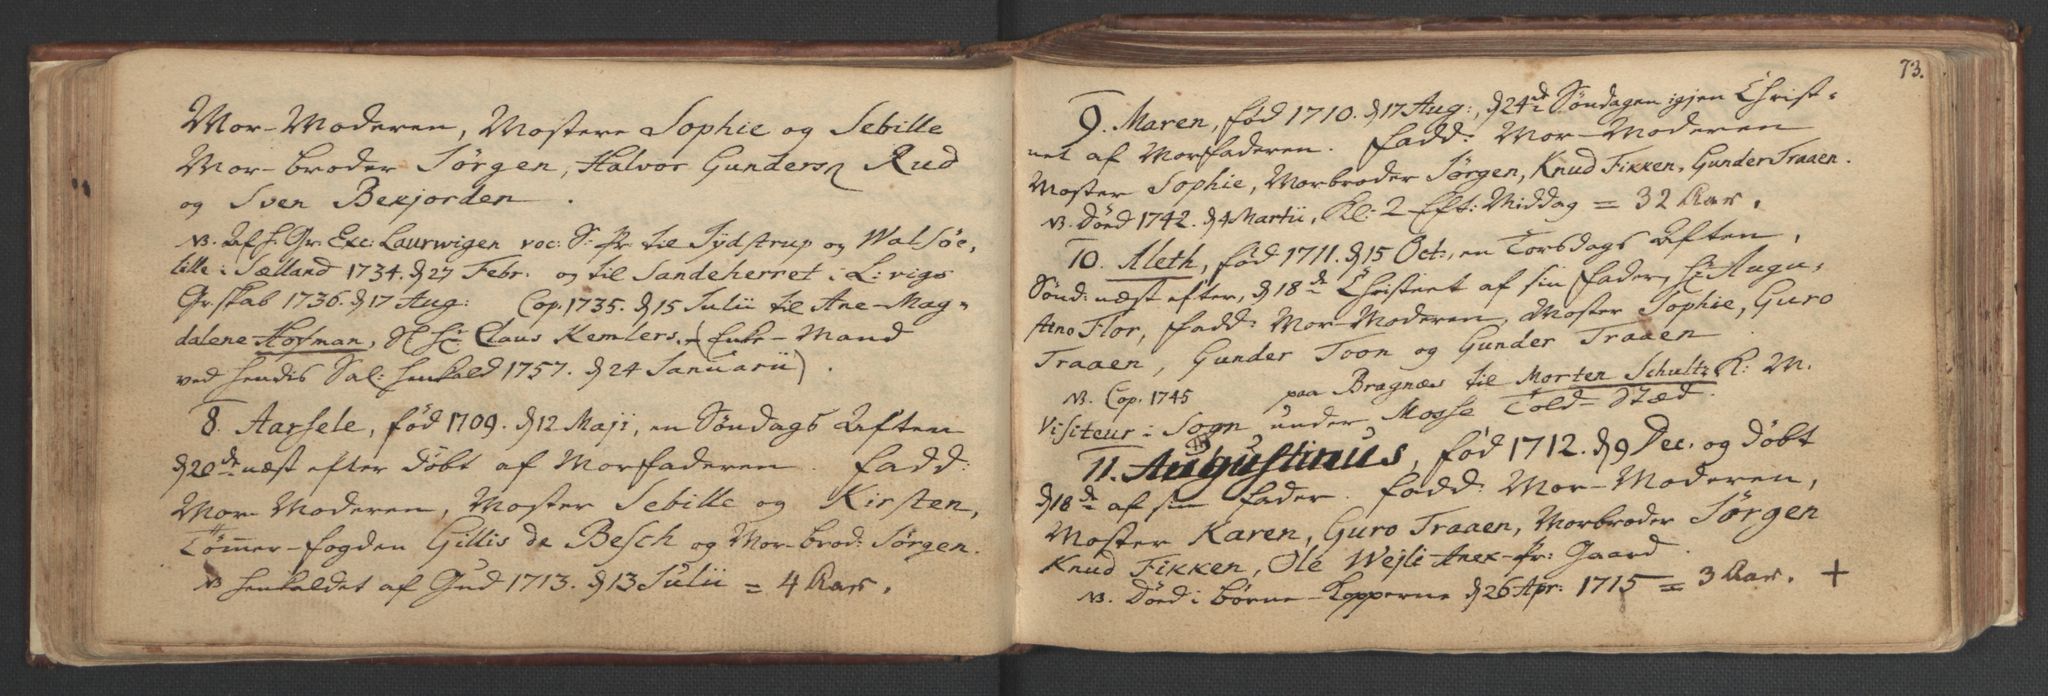 Mor-Moderen, Mostere Sophie og Sebille
Mor-broder Jørgen, Halvor Gunders Rud
og Sven Bexjorden.
NB. Af h: Gr: Exc: Laurwigen voc: S: Pr: til Jydstrup og Walsöe,
lille i Sælland 1734. d 27 Febr: og til Sandeherret i L:vigs
Gr:skab 1736. d 17 Aug: Cop. 1735. d 15 Julii til Ane-Mag=
dalene Hofman, Sl Hr: Claus Kemlers. (Enke-Mand
ved hendis Sal: henkald 1757. d 24 Januarii).
8. Aarsele, fød 1709. d 12 Maji, en Søndags Aften
d 20de næst efter døbt af Morfaderen. Fadd:
Mor-Moderen, Moster Sebille og Kirsten,
Tømmer-fogden Gillis de Besch og Mor-brod: Jørgen.
NB henkaldet af Gud 1713. d 13 Julii = 4 Aar.
73.
9. Maren, fød 1710. d 17 Aug:, d 24de Søndagen igjen Christ=
net af Morfaderen. Fadd: Mor-Moderen
Moster Sophie, Morbroder Jørgen, Knud Fixken, Gunder Traaen.
NB. Døed 1742. d 4 Martii, Kl: 2 Eft: Middag = 32 Aar.
10. Aleth, fød 1711. d 15 Oct:, en Torsdags Aften,
Sønd: næst efter, d 18de Christnet af sin Fader, Hr: Augu=
stino Flor, Fadd: Mor-Moderen, Moster Sophie, Guro
Traaen, Gunder Toon og Gunder Traaen
NB. Cop. 1745 paa Bragnæs til Morten Schultz K: M.
Visiteur i Sogn under Mosse Told-Stæd.
11. Augustinus, fød 1712. d 9 Dec. og døbt
d 18de af sin Fader. Fadd: Mor-Moderen,
Moster Karen, Guro Traaen, Morbroder Jørgen
Knud Fixken, Ole Wejli Anex-Pr: Gaard.
NB. Døed i børne-Kopperne d 26 Apr: 1715 = 3 Aar. +